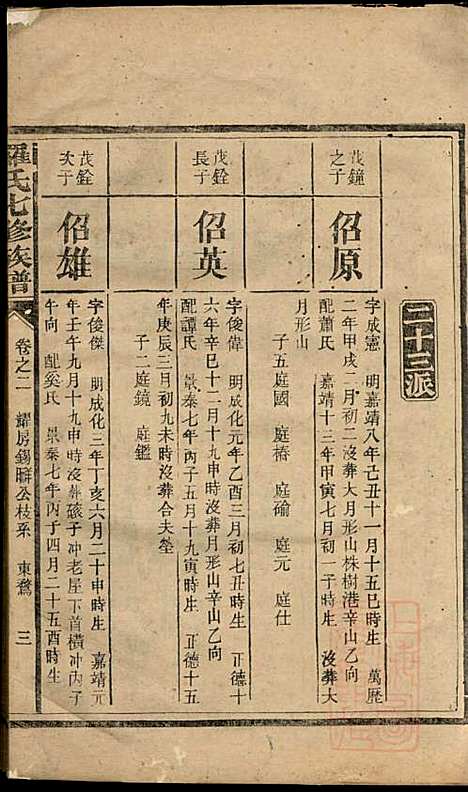 二十三派
茂鐘之子
佋原
字成憲 明嘉靖八年己丑十一月十五巳時生 萬歷
二年甲戌二月初二沒葬大月形山株樹港辛山乙向
配蕭氏 嘉靖十三年甲寅七月初一子時生 沒葬大
月形山
子五庭國 庭椿 庭碖 庭元 庭仕
茂銓長子
佋英
字俊偉 明成化元年乙酉三月初七丑時生 正德十
六年辛巳十二月十九申時沒葬大月形山辛山乙向
配譚氏 景泰七年丙子五月十九寅時生 正德十五
年庚辰三月初九未時沒葬合夫塋
子二庭鏡 庭鑑
茂銓次子
佋雄
字俊傑 明成化三年丁亥六月二十申時生 嘉靖元
年壬午九月十九申時沒葬磙子冲老屋下首橫冲內子
午向 配奚氏 景泰七年丙子四月二十五酉時生
羅氏七修族譜
卷之二 耀房錫疄公枝系 東鶩 三